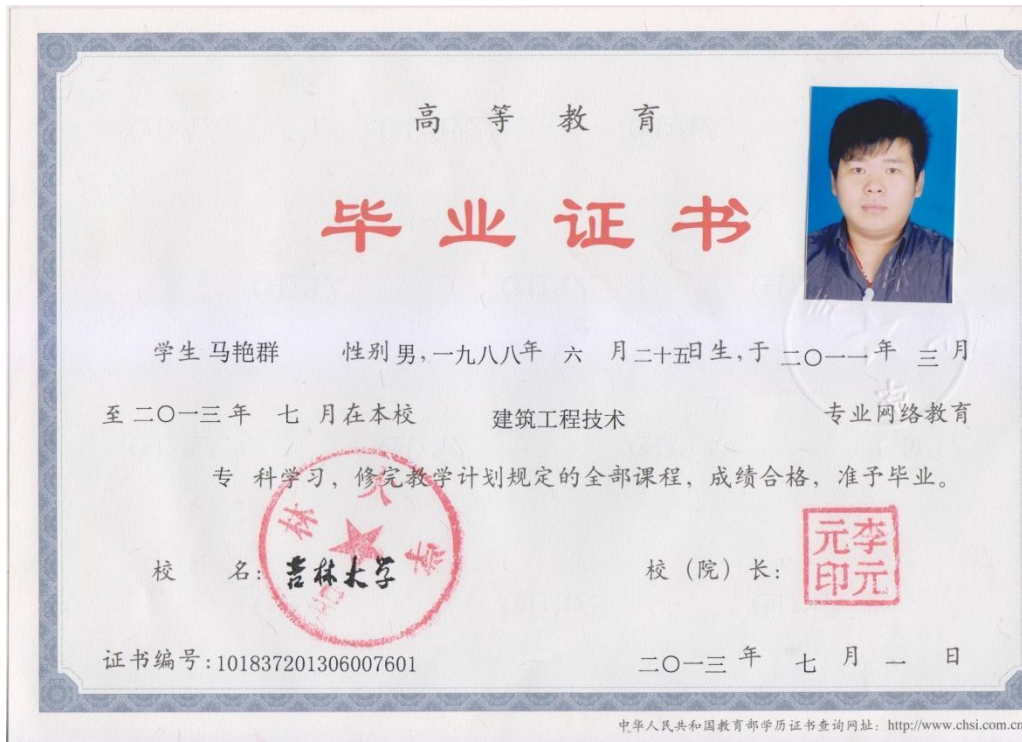 高等教育
毕业证书
学生 马艳群 性别 男，一九八八年 六 月二十五日生，于 二〇一一年 三 月
至 二〇一三 年 七 月在本校 建筑工程技术 专业网络教育
专 科学习，修完教学计划规定的全部课程，成绩合格，准予毕业。
校 名：吉林大学 校（院）长：
吉林大学
李元元印
证书编号：101837201306007601 二〇一三 年 七 月 一 日
中华人民共和国教育部学历证书查询网址：http://www.chsi.com.cn